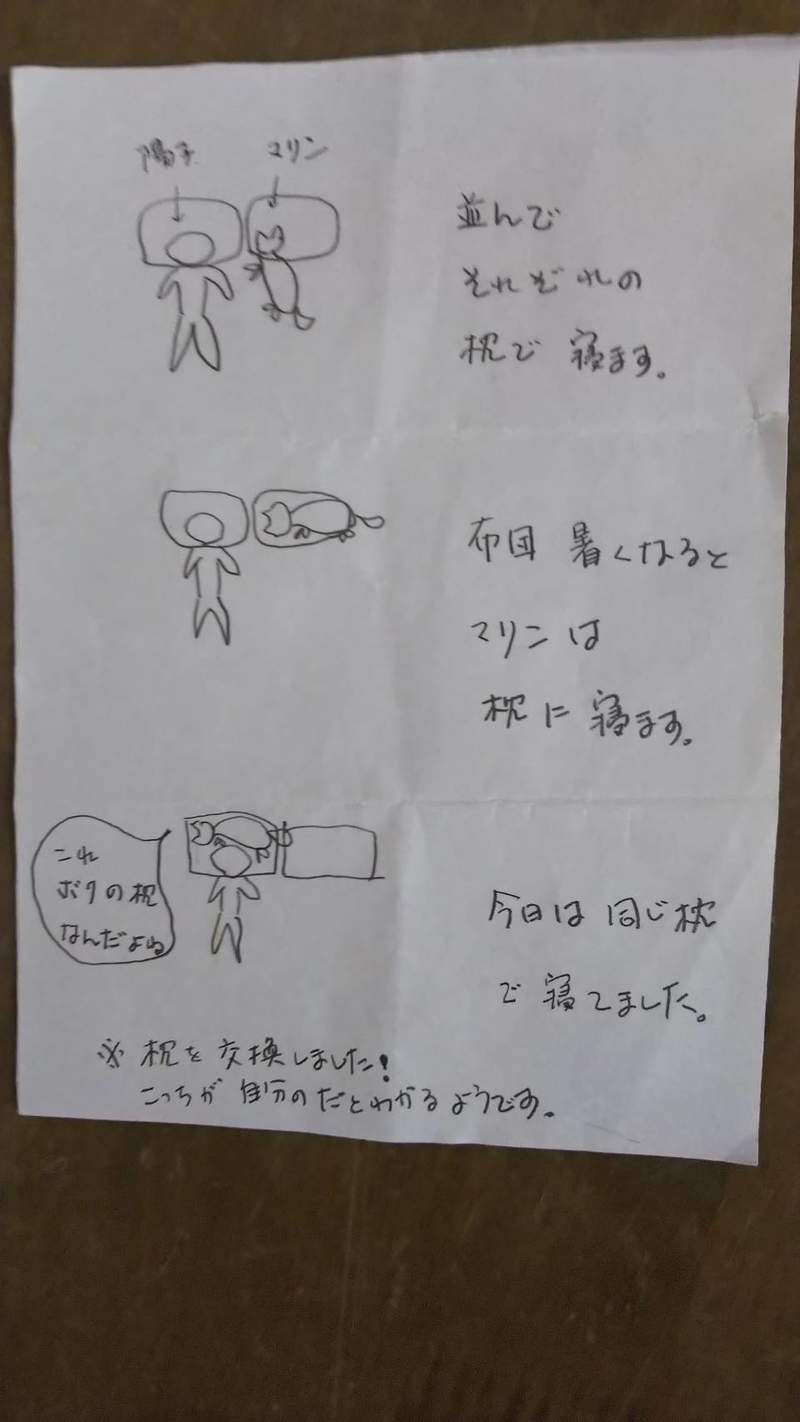 陽子 マリン
並んで
それぞれの
枕で 寝ます。
布団 暑くなると
マリンは
枕に 寝ます。
これ
ボクの枕
なんだよね
今日は 同じ枕
で 寝てました。
※ 枕を 交換しました!
こっちが 自分のだとわかるようです。